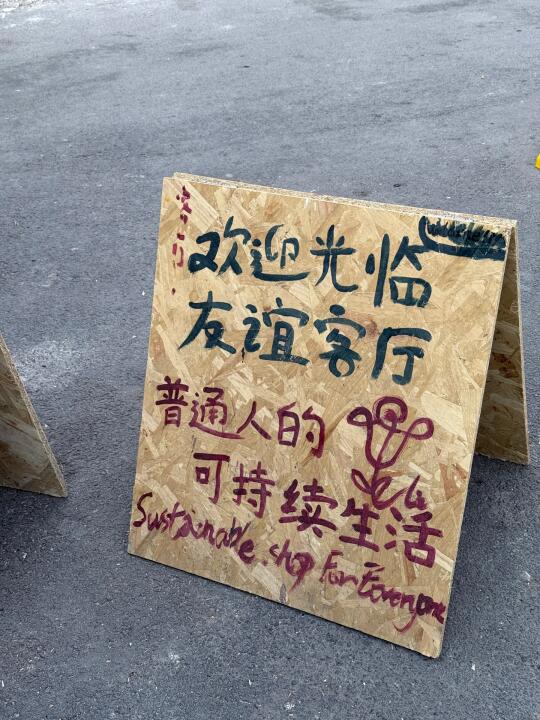 欢迎光临
友谊客厅
普通人的
可持续生活
Sustainable shop For Everyone